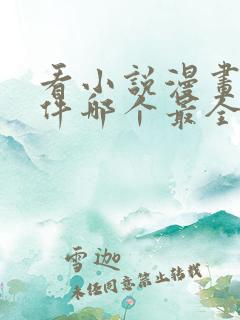 看小説漫畫
件哪个最全
雪迦
未经同意禁止转载